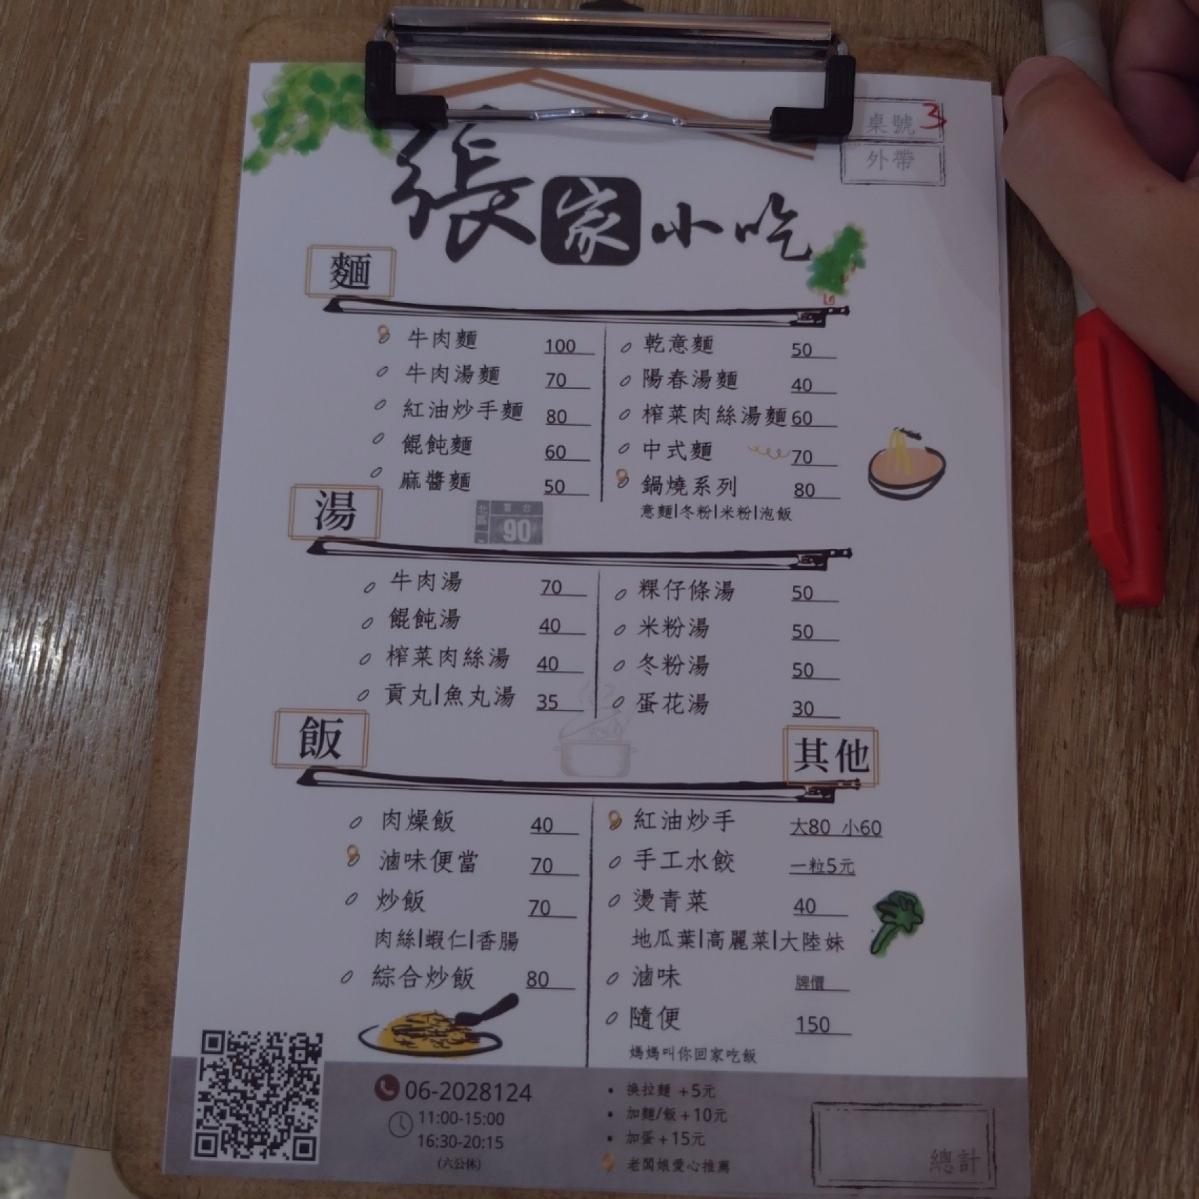 桌號 3
外帶
張家小吃
麵
牛肉麵 100
牛肉湯麵 70
紅油炒手麵 80
餛飩麵 60
麻醬麵 50
乾意麵 50
陽春湯麵 40
榨菜肉絲湯麵 60
中式麵 70
鍋燒系列 80
意麵|冬粉|米粉|泡飯
湯
90
牛肉湯 70
餛飩湯 40
榨菜肉絲湯 40
貢丸|魚丸湯 35
粿仔條湯 50
米粉湯 50
冬粉湯 50
蛋花湯 30
飯
肉燥飯 40
滷味便當 70
炒飯 70
肉絲|蝦仁|香腸
綜合炒飯 80
其他
紅油炒手 大80 小60
手工水餃 一粒5元
燙青菜 40
地瓜葉|高麗菜|大陸妹
滷味 牌價
隨便 150
媽媽叫你回家吃飯
06-2028124
11:00-15:00
16:30-20:15
(六公休)
換拉麵 +5元
加麵/飯+10元
加蛋+15元
老闆娘愛心推薦
總計